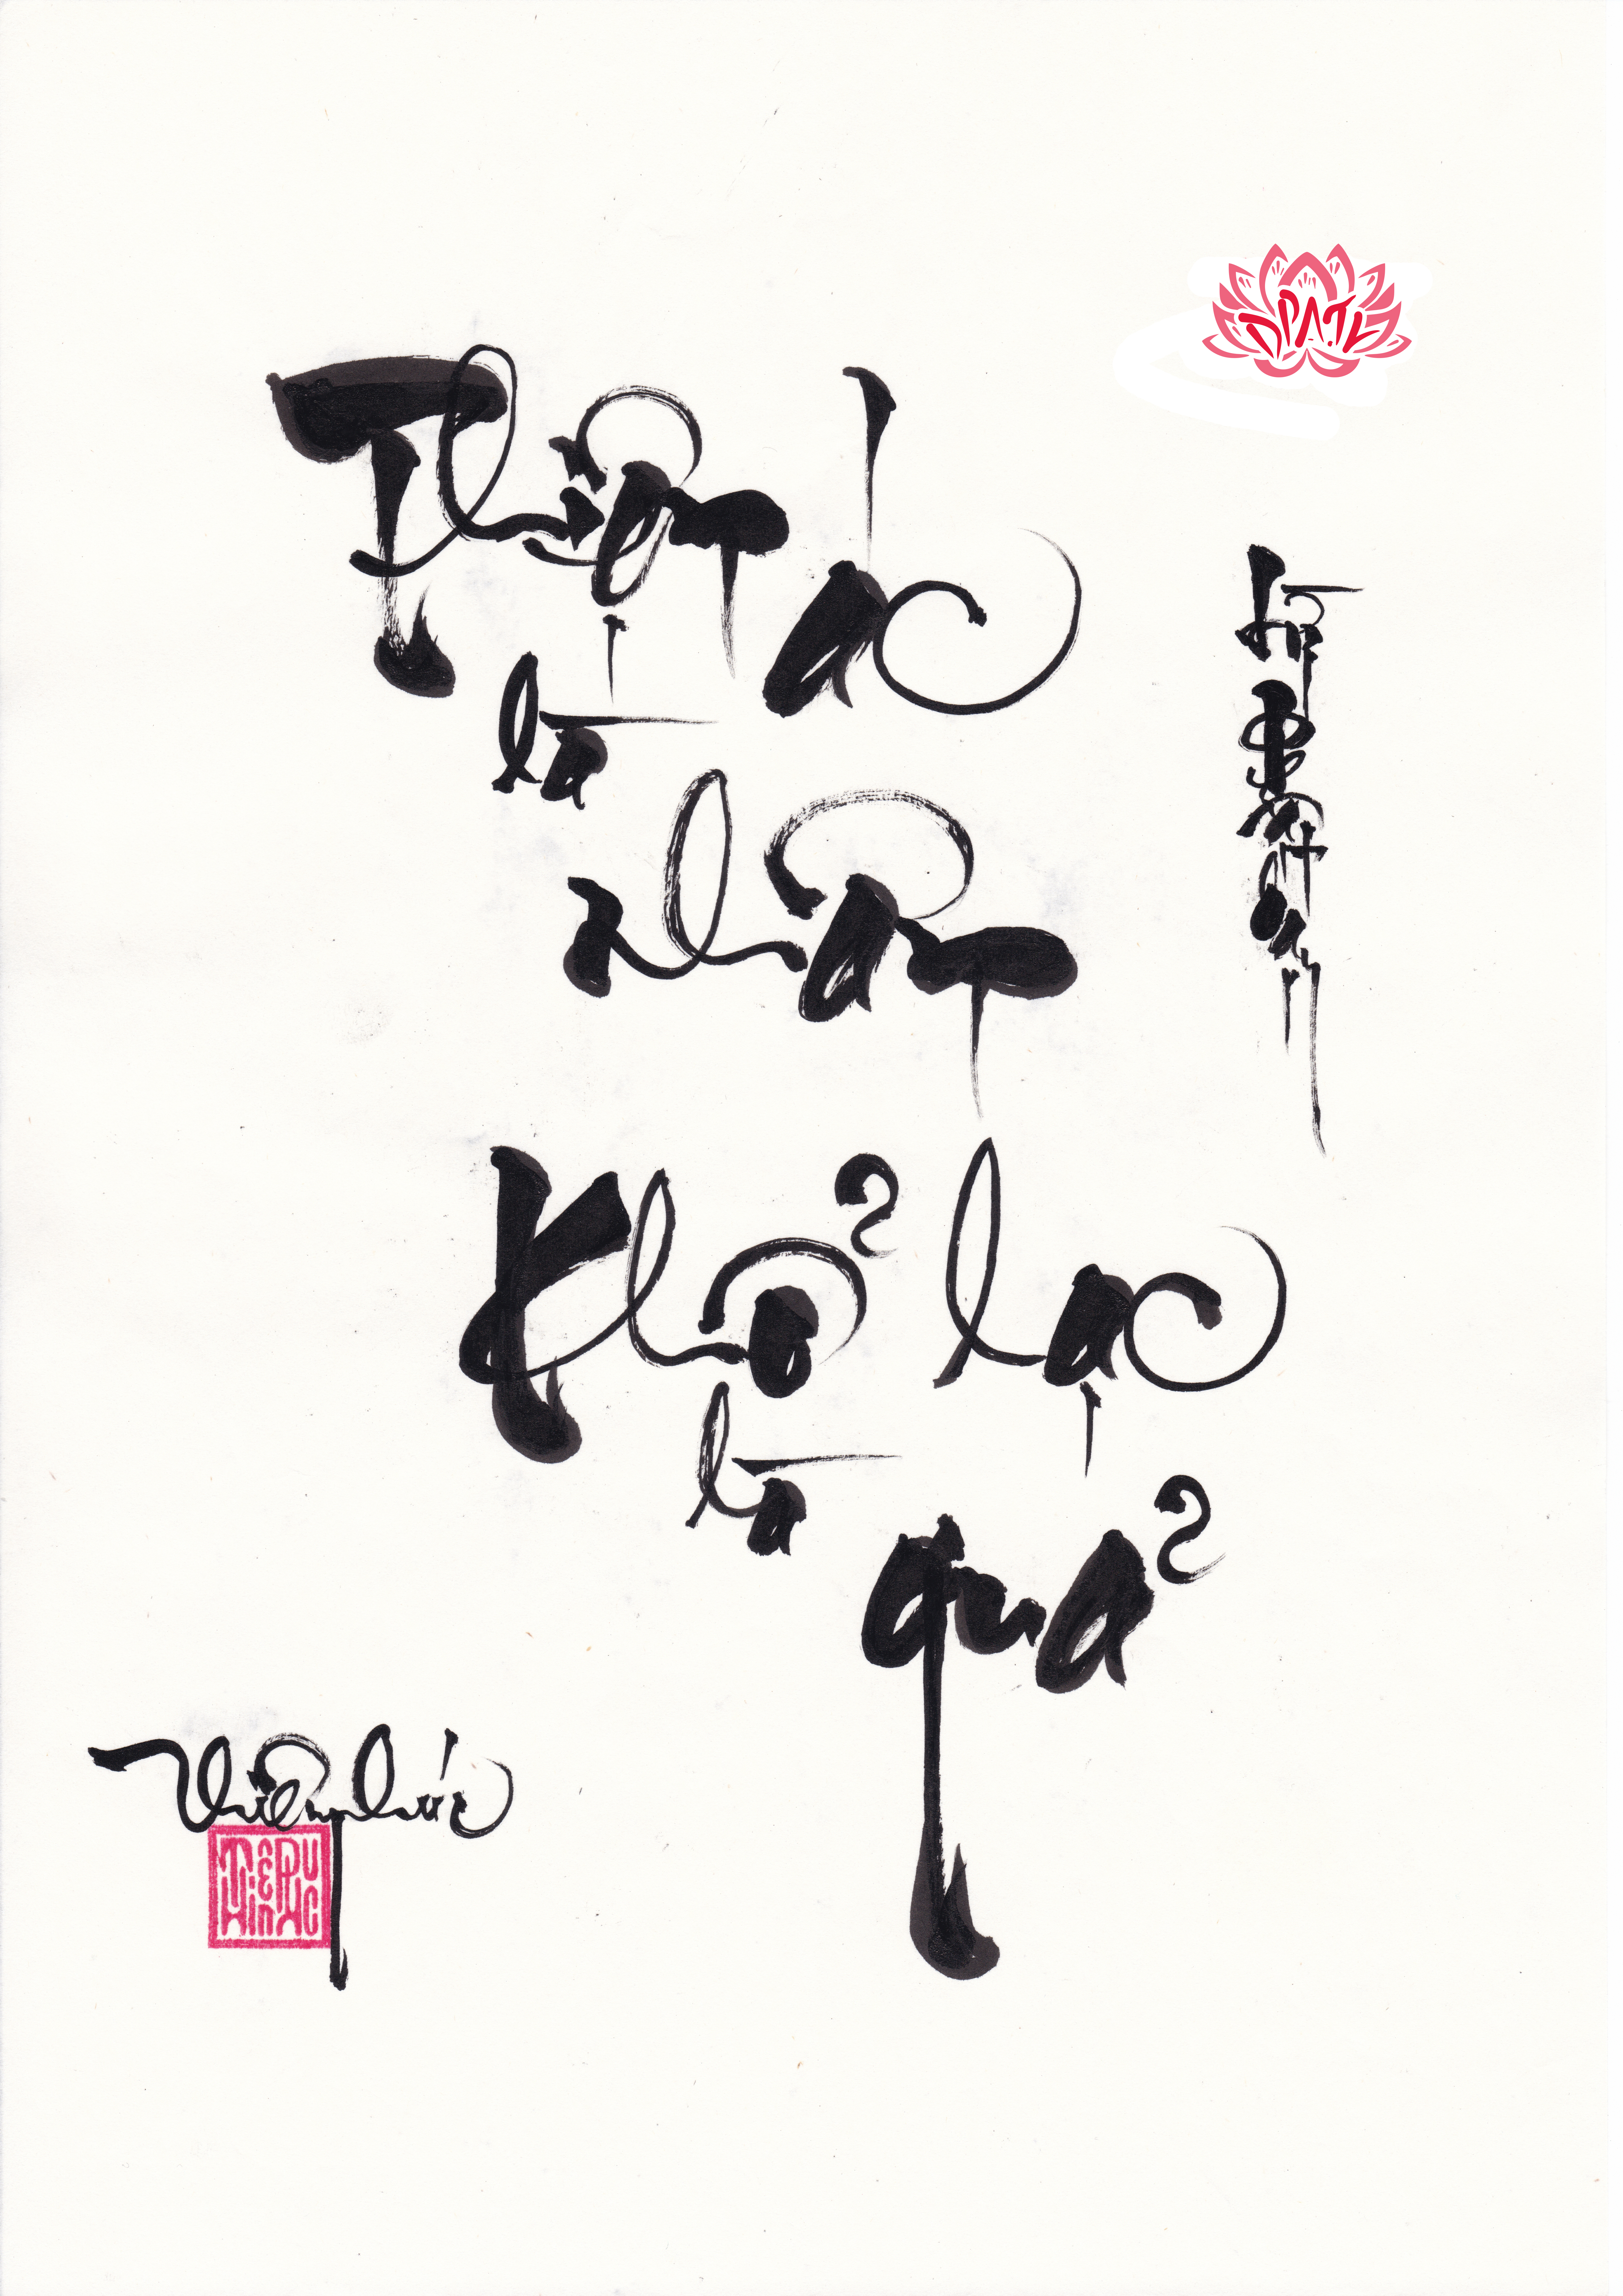 Thiện ác
là
nhân
Khổ lạc
là
quả
Thiên Phước
THIÊN PHUC
DPATL